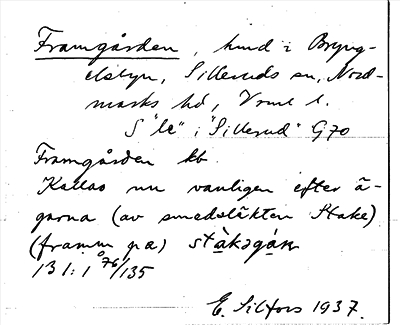 Framgården, hmd i Bryng-
elsbyn, Silleruds sn, Nord-
marks hd, Vrml l.
S "le" i "Sillerud" G70
Framgården kb
Kallas nu vanligen efter ä-
garna (av smedsläkten Stake)
(framm pa) stàkagáɳ
131:1 76/135
E. Silfors 1937.